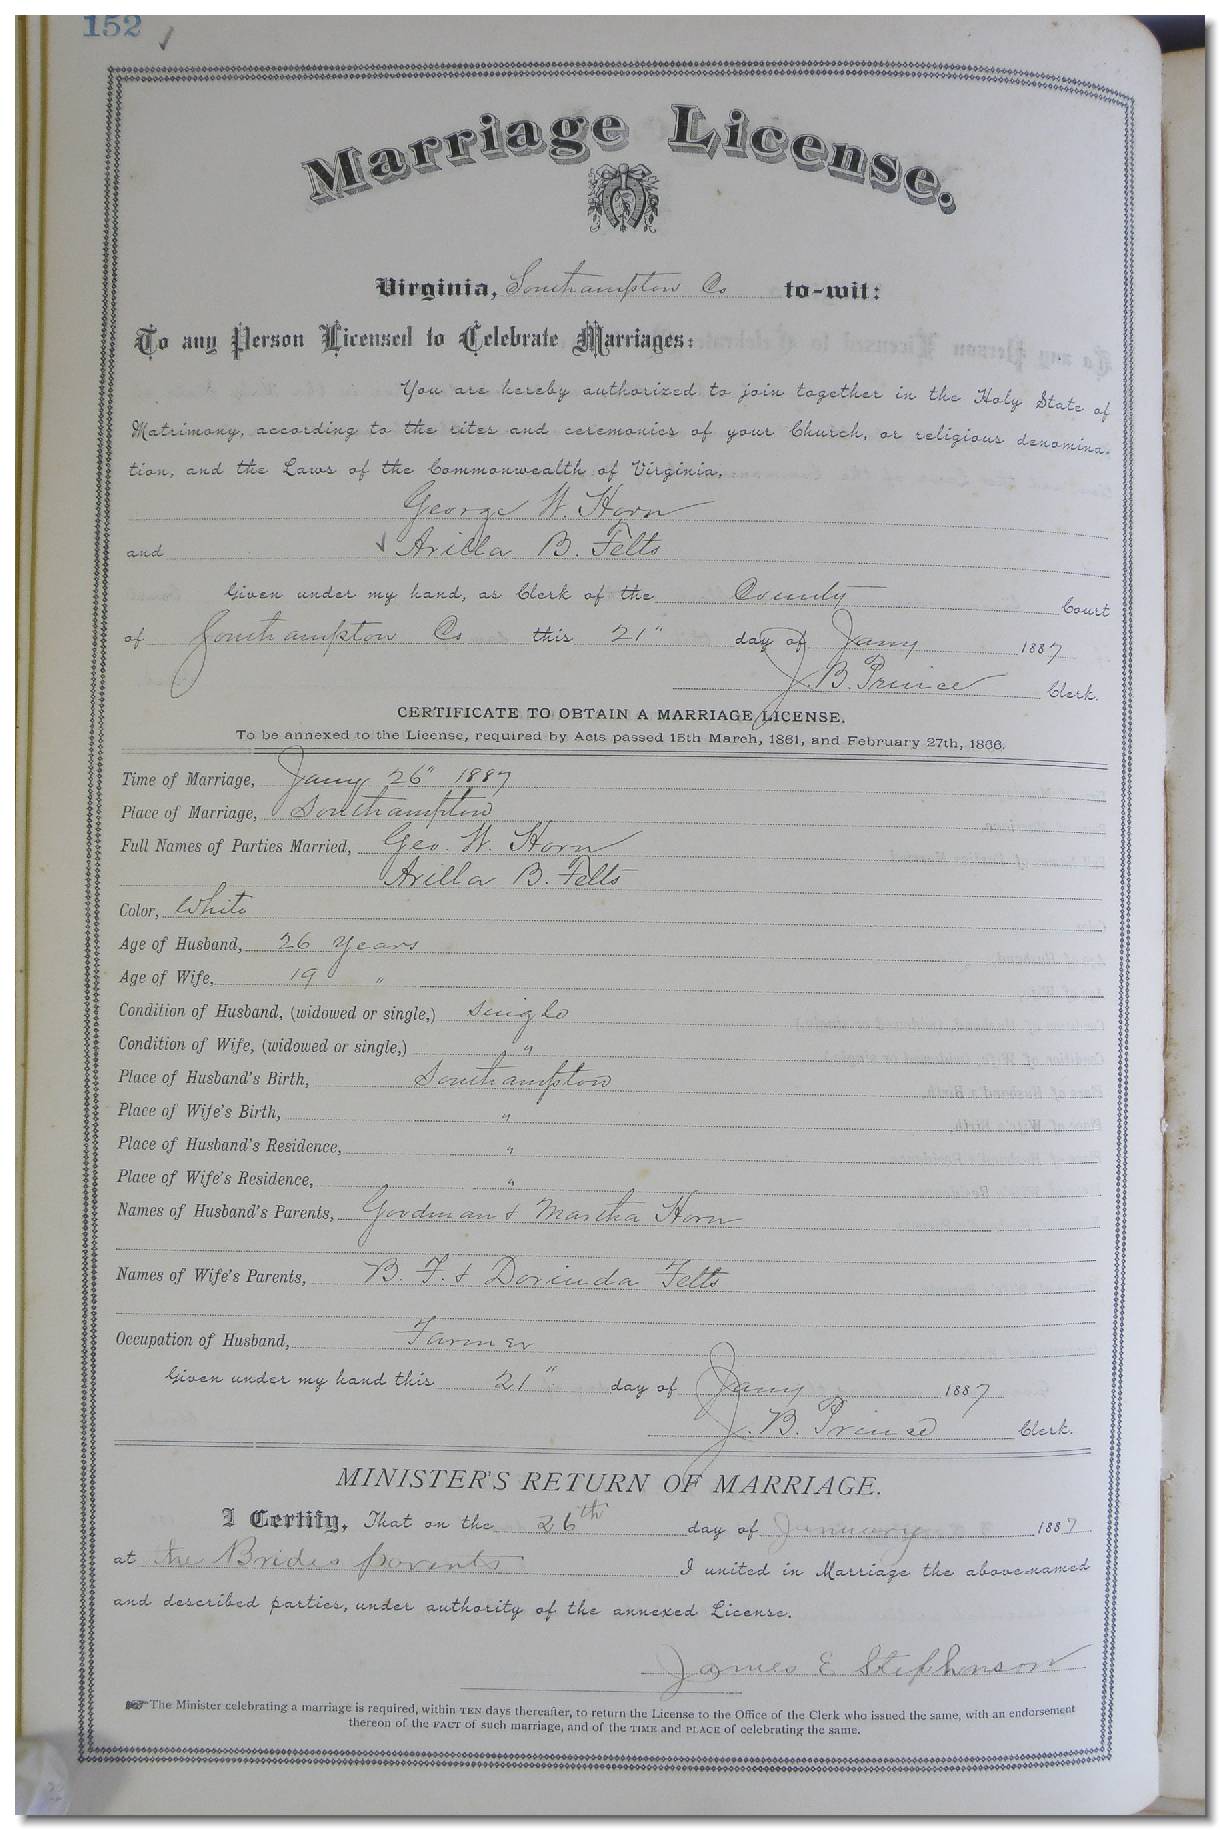 152
Marriage License.
Virginia, Southampton Co to-wit:
To any Person Licensed to Celebrate Marriages:
You are hereby authorized to join together in the Holy State of
Matrimony, according to the rites and ceremonies of your Church, or religious denomina-
tion, and the Laws of the Commonwealth of Virginia,
George W. Horn
and Arilla B. Felts
Given under my hand, as Clerk of the County Court
of Southampton Co this 21" day of Jany 1887
J. B. Prince Clerk.
CERTIFICATE TO OBTAIN A MARRIAGE LICENSE.
To be annexed to the License, required by Acts passed 15th March, 1861, and February 27th, 1866.
Time of Marriage, Jany 26" 1887
Place of Marriage, Southampton
Full Names of Parties Married, Geo. W. Horn
Arilla B. Felts
Color, White
Age of Husband, 26 Years
Age of Wife, 19 "
Condition of Husband, (widowed or single,) Single
Condition of Wife, (widowed or single,) "
Place of Husband's Birth, Southampton
Place of Wife's Birth, "
Place of Husband's Residence, "
Place of Wife's Residence, "
Names of Husband's Parents, Goodman & Martha Horn
Names of Wife's Parents, B. F. & Dorinda Felts
Occupation of Husband, Farmer
Given under my hand this 21" day of Jany 1887
J. B. Prince Clerk.
MINISTER'S RETURN OF MARRIAGE.
I Certify, That on the 26th day of January 1887
at the Brides parents I united in Marriage the above-named
and described parties, under authority of the annexed License.
James E Stephenson
The Minister celebrating a marriage is required, within TEN days thereafter, to return the License to the Office of the Clerk who issued the same, with an endorsement
thereon of the FACT of such marriage, and of the TIME and PLACE of celebrating the same.